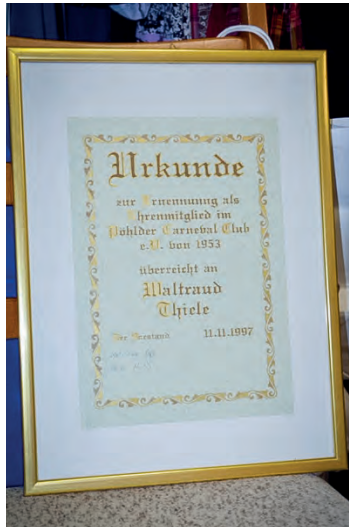 Urkunde
zur Ernennung als
Ehrenmitglied im
Pöhlder Carneval Club
e.V. von 1953
überreicht an
Waltraud
Thiele
Der Vorstand 11.11.1997